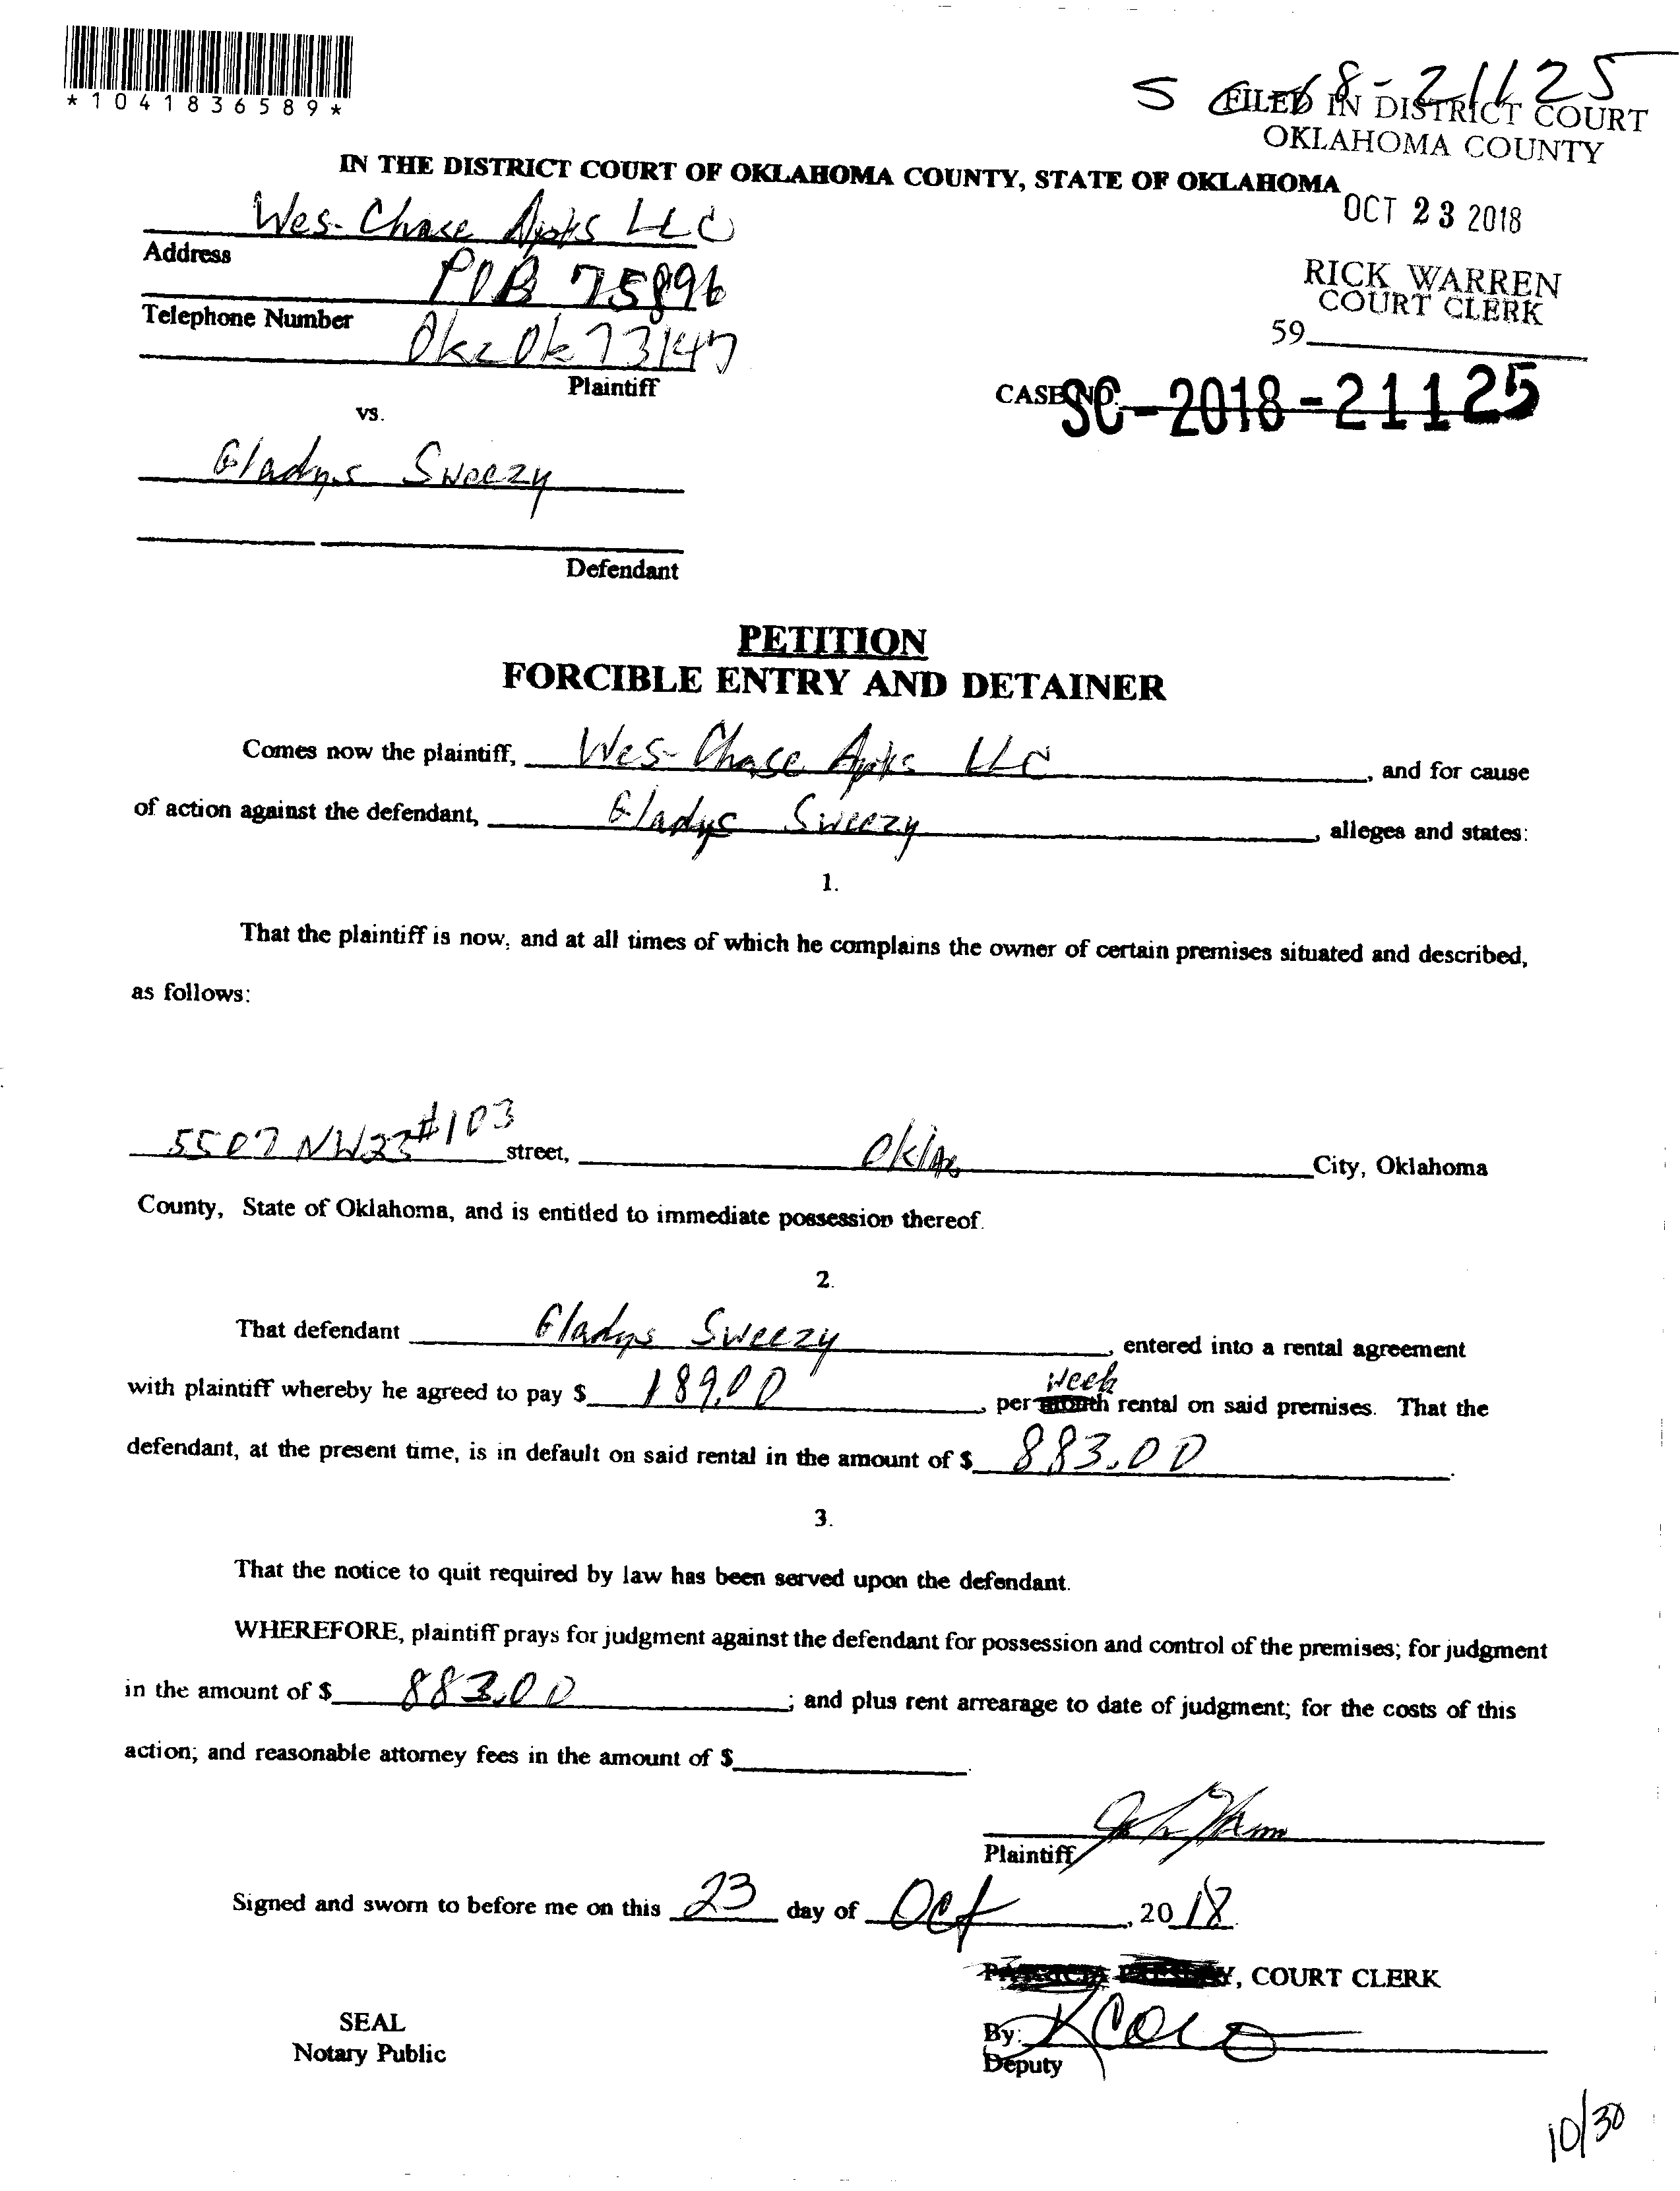 *1041836589*
S C 18-21125
FILED IN DISTRICT COURT
OKLAHOMA COUNTY
IN THE DISTRICT COURT OF OKLAHOMA COUNTY, STATE OF OKLAHOMA
OCT 23 2018
Wes-Chase Apts LLC
Address
RICK WARREN
COURT CLERK
POB 75896
Telephone Number
59
Okc Ok 73147
Plaintiff
CASE NO. SC-2018-21125
vs.
Gladys Sweezy
Defendant
PETITION
FORCIBLE ENTRY AND DETAINER
Comes now the plaintiff, Wes-Chase Apts LLC, and for cause
of action against the defendant, Gladys Sweezy, alleges and states:
1.
That the plaintiff is now, and at all times of which he complains the owner of certain premises situated and described,
as follows:
5507 NW23 #103 street, Okla City, Oklahoma
County, State of Oklahoma, and is entitled to immediate possession thereof.
2.
That defendant Gladys Sweezy, entered into a rental agreement
week
with plaintiff whereby he agreed to pay $ 189.00, per month rental on said premises. That the
defendant, at the present time, is in default on said rental in the amount of $ 883.00.
3.
That the notice to quit required by law has been served upon the defendant.
WHEREFORE, plaintiff prays for judgment against the defendant for possession and control of the premises; for judgment
in the amount of $ 883.00; and plus rent arrearage to date of judgment; for the costs of this
action; and reasonable attorney fees in the amount of $
Plaintiff
Signed and sworn to before me on this 23 day of Oct, 2018.
PATRICIA PRESLEY, COURT CLERK
SEAL
Notary Public
By:
Deputy
10/30